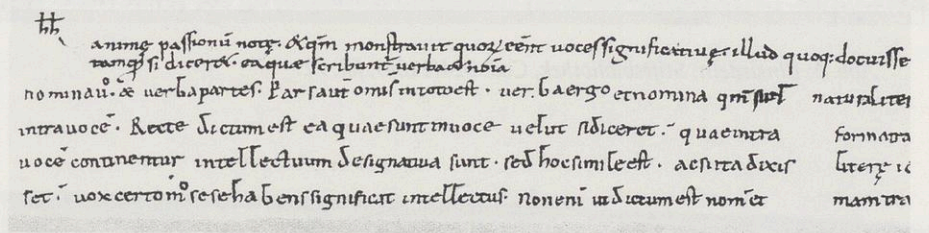 hh
animę passionū notę. & qm̄ monstrauit quorꝝ eēnt uoces significatiuę illud quoq: docuisse
tamqᵃ si dicer&. ea que scribunt̄ uerba & noīa
nominauī. & uerba partes. Pars aūt omīs in toto est. uerba ergo et nomina qm̄ sūt naturaliter
intra uocē. Recte dictum est ea quae sunt in uoce uelut si diceret. quae intra formatra
uocē continentur intellectuum designatiua sunt. sed hoc simile est. ac si ita dixis literę
set. uox certo mō sese habens significat intellectus. non enī ut dictum est nom̄ et mam tra